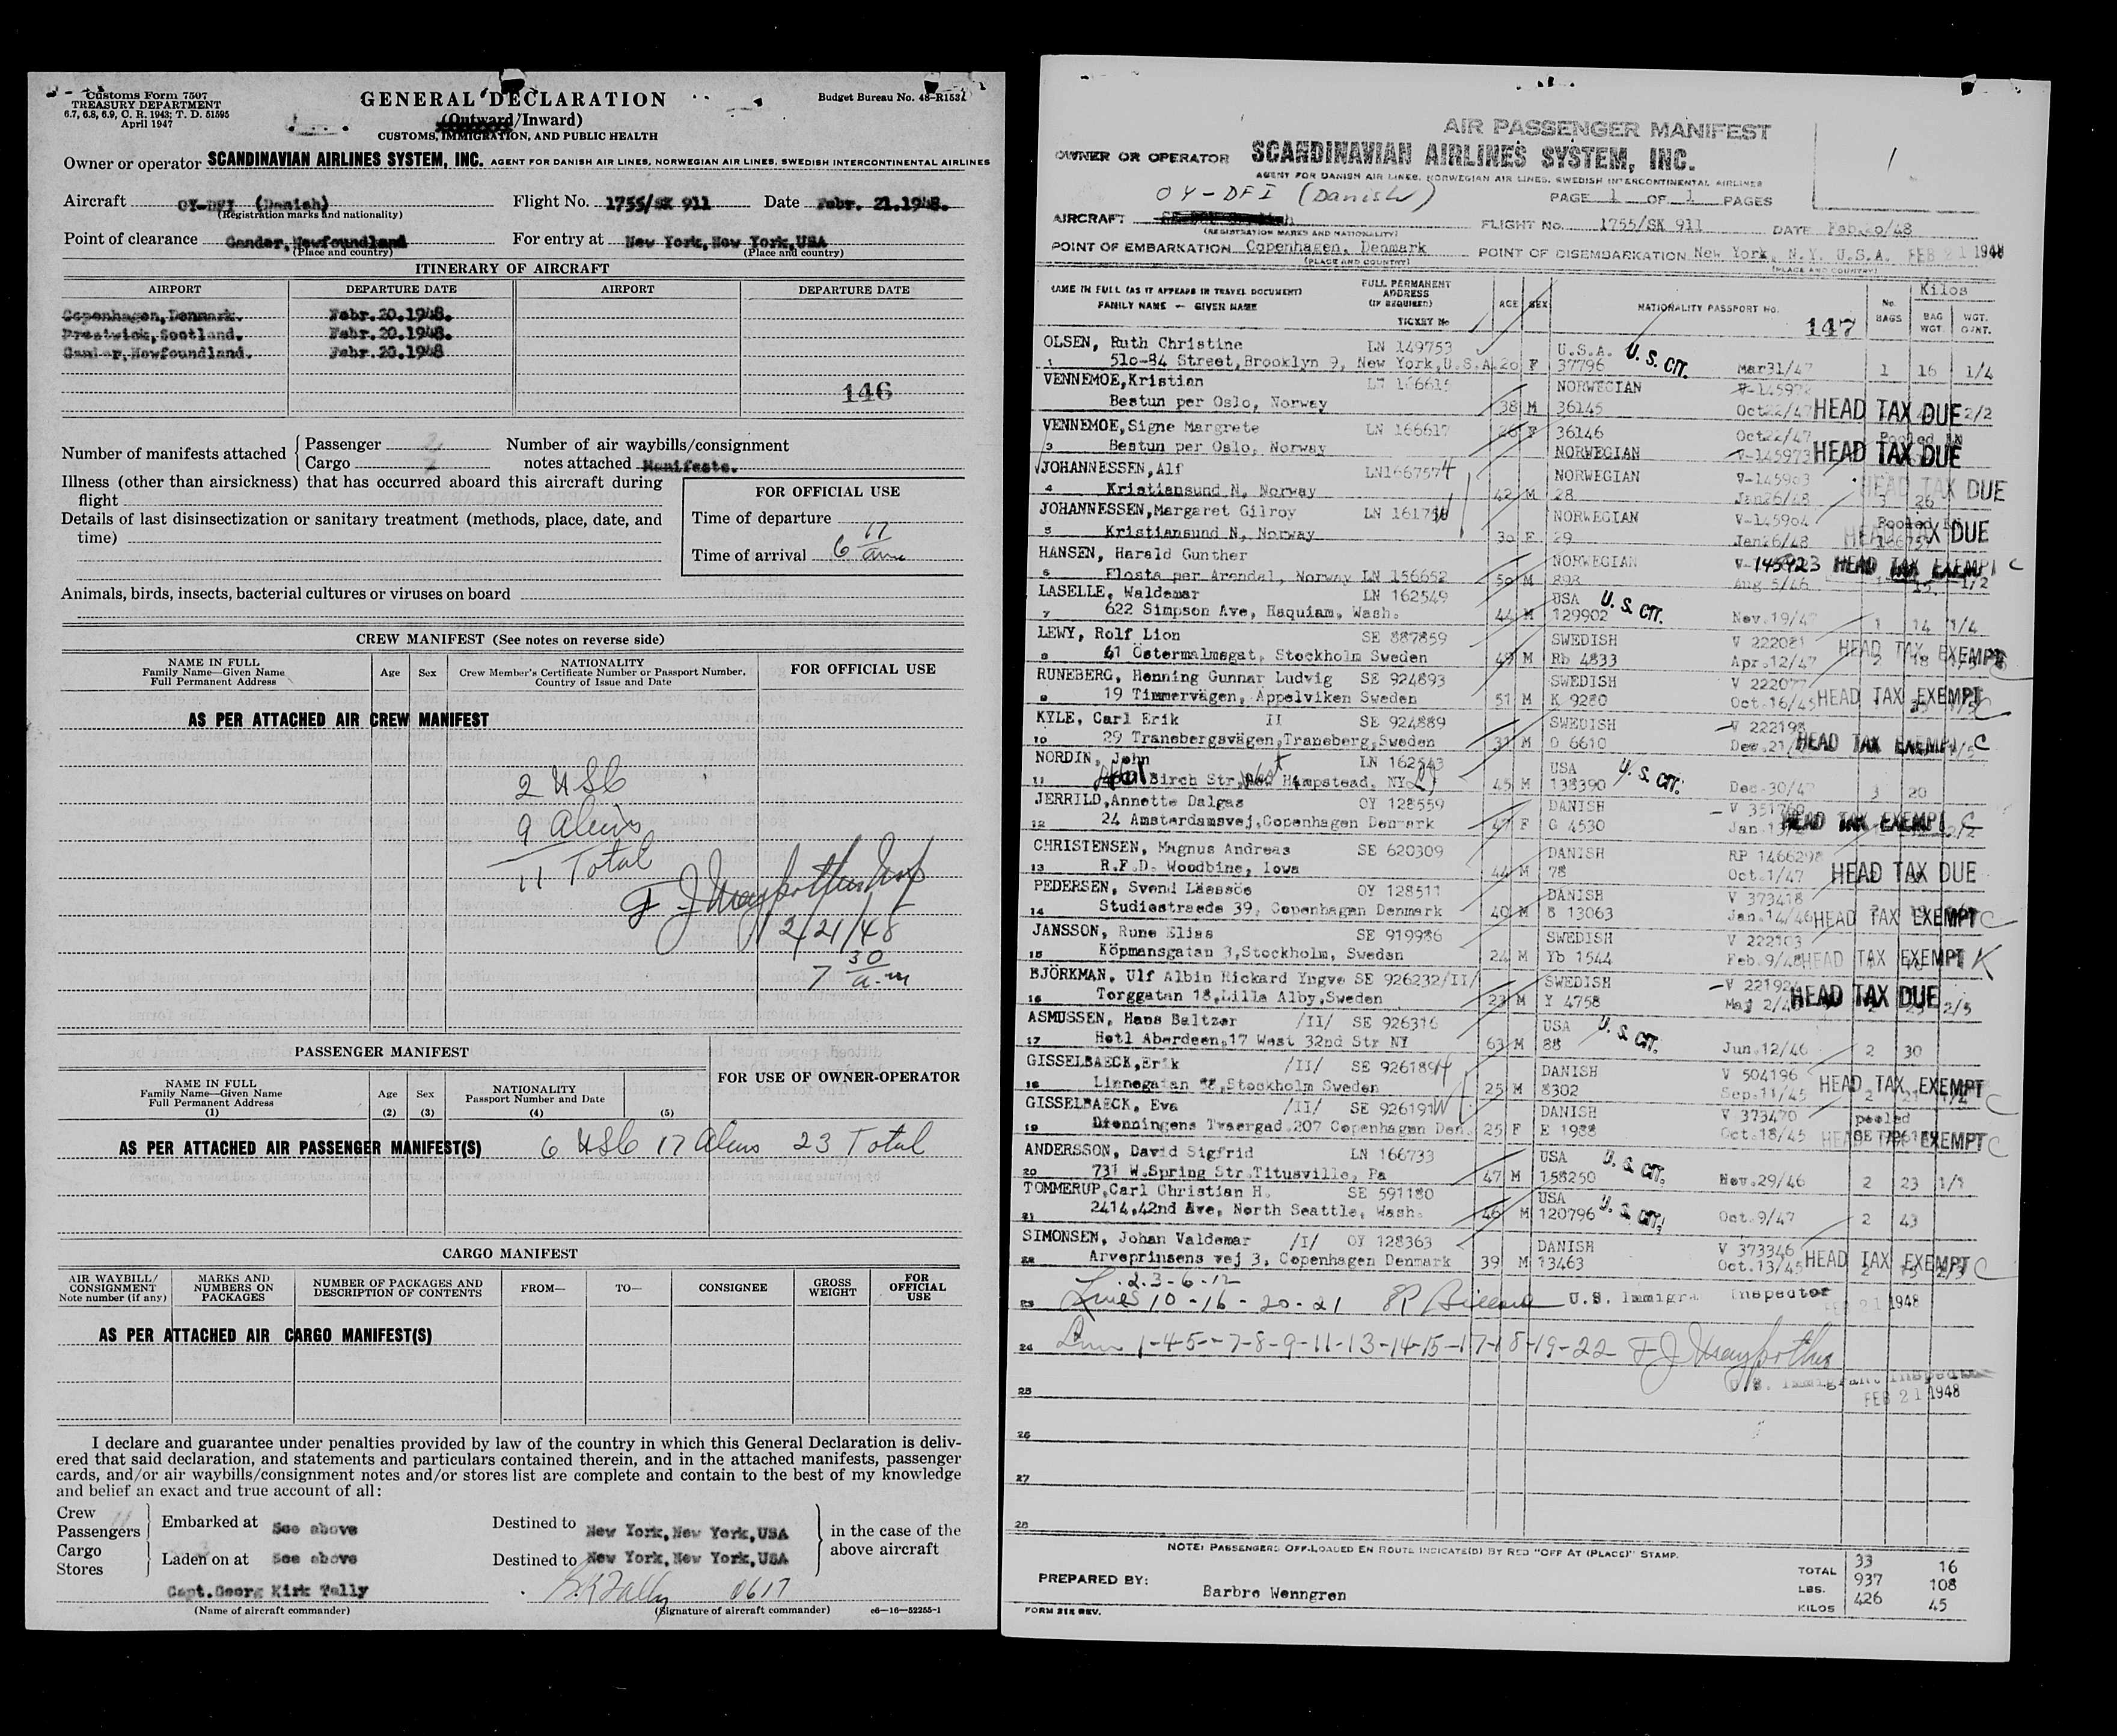 Customs Form 7507
TREASURY DEPARTMENT
6.7, 6.8, 6.9, C. R. 1943; T. D. 51595
April 1947
GENERAL DECLARATION
(Outward/Inward)
CUSTOMS, IMMIGRATION, AND PUBLIC HEALTH
Budget Bureau No. 48-R153
Owner or operator SCANDINAVIAN AIRLINES SYSTEM, INC. AGENT FOR DANISH AIR LINES, NORWEGIAN AIR LINES, SWEDISH INTERCONTINENTAL AIRLINES
Aircraft OY-DFI (Danish) Flight No. 1755/SK 911 Date Febr. 21.1948.
(Registration marks and nationality)
Point of clearance Gander, Newfoundland For entry at New York, New York, USA
(Place and country) (Place and country)
ITINERARY OF AIRCRAFT
AIRPORT DEPARTURE DATE AIRPORT DEPARTURE DATE
Copenhagen, Denmark. Febr.20.1948.
Prestwick, Scotland. Febr.20.1948.
Gander, Newfoundland. Febr.20.1948
146
Number of manifests attached Passenger 2 Number of air waybills/consignment
Cargo notes attached Manifests.
Illness (other than airsickness) that has occurred aboard this aircraft during
flight
FOR OFFICIAL USE
Details of last disinsectization or sanitary treatment (methods, place, date, and
time)
Time of departure
Time of arrival 6 17 am
Animals, birds, insects, bacterial cultures or viruses on board
CREW MANIFEST (See notes on reverse side)
NAME IN FULL
Family Name—Given Name
Full Permanent Address
Age Sex
NATIONALITY
Crew Member's Certificate Number or Passport Number,
Country of Issue and Date
FOR OFFICIAL USE
AS PER ATTACHED AIR CREW MANIFEST
2 USC
9 Aliens
11 Total
2/21/48
7 30 a.m
PASSENGER MANIFEST
NAME IN FULL
Family Name—Given Name
Full Permanent Address
(1)
Age
(2)
Sex
(3)
NATIONALITY
Passport Number and Date
(4) (5)
FOR USE OF OWNER-OPERATOR
AS PER ATTACHED AIR PASSENGER MANIFEST(S) 6 USC 17 Aliens 23 Total
CARGO MANIFEST
AIR WAYBILL/
CONSIGNMENT
Note number (if any)
MARKS AND
NUMBERS ON
PACKAGES
NUMBER OF PACKAGES AND
DESCRIPTION OF CONTENTS
FROM— TO— CONSIGNEE
GROSS
WEIGHT
FOR
OFFICIAL
USE
AS PER ATTACHED AIR CARGO MANIFEST(S)
I declare and guarantee under penalties provided by law of the country in which this General Declaration is deliv-
ered that said declaration, and statements and particulars contained therein, and in the attached manifests, passenger
cards, and/or air waybills/consignment notes and/or stores list are complete and contain to the best of my knowledge
and belief an exact and true account of all:
Crew
Passengers
Cargo
Stores
Embarked at See above Destined to New York, New York, USA
Laden on at See above Destined to New York, New York, USA
in the case of the
above aircraft
Capt. Georg Kirk Tally
(Name of aircraft commander)
G.K.Tally 0617
(Signature of aircraft commander)
c6—16—52255-1
AIR PASSENGER MANIFEST
OWNER OR OPERATOR SCANDINAVIAN AIRLINES SYSTEM, INC.
AGENT FOR DANISH AIR LINES, NORWEGIAN AIR LINES, SWEDISH INTERCONTINENTAL AIRLINES
1
OY-DFI (Danish) PAGE 1 OF 1 PAGES
AIRCRAFT FLIGHT No. 1755/SK 911 DATE Feb.20/48
(REGISTRATION MARKS AND NATIONALITY)
POINT OF EMBARKATION Copenhagen, Denmark POINT OF DISEMBARKATION New York, N.Y. U.S.A. FEB 21 1948
(PLACE AND COUNTRY) (PLACE AND COUNTRY)
NAME IN FULL (AS IT APPEARS IN TRAVEL DOCUMENT)
FAMILY NAME — GIVEN NAME
FULL PERMANENT
ADDRESS
(IF REQUIRED)
TICKET No
AGE SEX NATIONALITY PASSPORT No. 147
No. BAGS
Kilos
BAG WGT. WGT.
OLSEN, Ruth Christine LN 149753 U.S.A. U.S. CIT.
1 510-84 Street, Brooklyn 9, New York, U.S.A. 20 F 37796 Mar31/47 1 16 1/4
VENNEMOE, Kristian LN 166616 NORWEGIAN V-145972
Bestun per Oslo, Norway 38 M 36145 Oct22/47 HEAD TAX DUE 2/2
VENNEMOE, Signe Margrete LN 166617 36146 Oct22/47 Pooled
3 Bestun per Oslo, Norway 26 F NORWEGIAN V-145973 HEAD TAX DUE
JOHANNESSEN, Alf LN166757 NORWEGIAN V-145903
4 Kristiansund N, Norway 42 M 28 Jan26/48 3 26 HEAD TAX DUE
JOHANNESSEN, Margaret Gilroy NORWEGIAN V-145904 Pooled
5 Kristiansund N, Norway 30 F 29 Jan26/48 HEAD TAX DUE
HANSEN, Harald Gunther NORWEGIAN V-145923 HEAD TAX EXEMPT C
6 Flosta per Arendal, Norway LN 156652 50 M 898 Aug 5/46 1 15 1/2
LASELLE, Waldemar LN 162549 USA U.S. CIT.
7 622 Simpson Ave, Haquiam, Wash. 44 M 129902 Nov.19/47 1 14 1/4
LEWY, Rolf Lion SE 887859 SWEDISH V 222081
8 61 Östermalmsgat, Stockholm Sweden 49 M Rb 4833 Apr.12/47 2 18 HEAD TAX EXEMPT
RUNEBERG, Henning Gunnar Ludvig SE 924893 SWEDISH V 222077
9 19 Timmervägen, Äppelviken Sweden 51 M K 9280 Oct.16/45 HEAD TAX EXEMPT C
KYLE, Carl Erik II SE 924889 SWEDISH V 222198
10 29 Tranebergsvägen, Traneberg, Sweden 31 M O 6610 Dec.21/ HEAD TAX EXEMPT C
NORDIN, John LN 162543 USA U.S. CIT.
11 Birch Str, West Hempstead, NY 45 M 138390 Dec.30/47 3 20
JERRILD, Annette Dalgas OY 128559 DANISH V 351760
12 24 Amsterdamsvej, Copenhagen Denmark 47 F G 4530 Jan.13/ HEAD TAX EXEMPT C
CHRISTENSEN, Magnus Andreas SE 620309 DANISH RP 1466298
13 R.F.D. Woodbine, Iowa 44 M 78 Oct.1/47 HEAD TAX DUE
PEDERSEN, Svend Läessöe OY 128511 DANISH V 373418
14 Studiestraede 39, Copenhagen Denmark 40 M B 13063 Jan.14/46 HEAD TAX EXEMPT C
JANSSON, Rune Elias SE 919986 SWEDISH V 222103
15 Köpmansgatan 3, Stockholm, Sweden 24 M Yb 1544 Feb.9/48 HEAD TAX EXEMPT K
BJÖRKMAN, Ulf Albin Rickard Yngve SE 926232/II/ SWEDISH V 221924
16 Torggatan 18, Lilla Alby, Sweden 23 M Y 4758 Maj 2/4 HEAD TAX DUE 2/5
ASMUSSEN, Hans Baltzer /II/ SE 926316 USA U.S. CIT.
17 Hotl Aberdeen, 17 West 32nd Str NY 63 M 88 Jun.12/46 2 30
GISSELBAECK, Erik /II/ SE 926189 DANISH V 504196
18 Linnegatan 38, Stockholm Sweden 25 M 8302 Sep.11/45 2 21 HEAD TAX EXEMPT C
GISSELBAECK, Eva /II/ SE 926191 DANISH V 373470 pooled
19 Dronningens Tvaergad.207 Copenhagen Den. 25 F E 1988 Oct.18/45 HEAD TAX EXEMPT C
ANDERSSON, David Sigfrid LN 166733 USA U.S. CIT.
20 731 W.Spring Str.Titusville, Pa 47 M 158250 Nov.29/46 2 23 1/1
TOMMERUP, Carl Christian H. SE 591180 USA U.S. CIT.
21 2414, 42nd Ave, North Seattle, Wash. 46 M 120796 Oct.9/47 2 43
SIMONSEN, Johan Valdemar /I/ OY 128363 DANISH V 373346
22 Arveprinsens vej 3, Copenhagen Denmark 39 M 13463 Oct.13/45 HEAD TAX EXEMPT C
2-3-6-12
23 Lines 10-16-20-21 U.S. Immigrant Inspector FEB 21 1948
24 Lines 1-4-5-7-8-9-11-13-14-15-17-18-19-22
U.S. Immigrant Inspector
25 FEB 21 1948
26
27
28
NOTE: PASSENGERS OFF-LOADED EN ROUTE INDICATE(D) BY RED "OFF AT (PLACE)" STAMP.
TOTAL 33 16
LBS. 937 108
KILOS 426 45
PREPARED BY: Barbro Wenngren
FORM 212 REV.